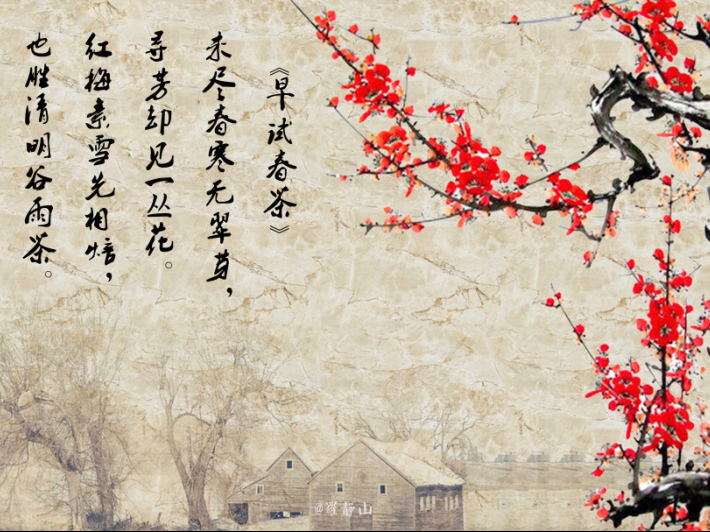 《早试春茶》
未尽春寒无翠芽，
寻芳却见一丛花。
红梅素雪先相焙，
也胜清明谷雨茶。